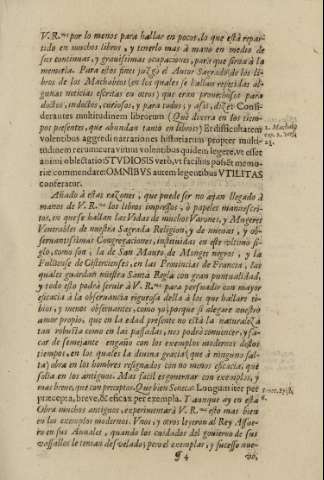 V. R.mas por lo menos para hallar en pocos, lo que està repar-
tido en muchos libros, y tenerlo mas à mano en medio de
sus continuas, y gravissimas ocupaciones, para que sirva à la
memoria. Para estos fines juzgò el Autor Sagrado de los li-
bros de los Machabeos (en los quales se hallan repetidas al-
gunas noticias escritas en otros) que eran provechosos para
doctos, indoctos, curiosos, y para todos; y assi, dize: Consi-
derantes multitudinem librorum (Què dixera en los tiem-
pos presentes, que abundan tanto en libros?) Et difficultatem
volentibus aggredi narrationes historiarum propter multi-
tudinem rerum: curavimus volentibus quidem legere, ut esset
animi oblectatio: STUDIOSIS verò, ut facilius possēt memo-
riæ commendare: OMNIBUS autem legentibus UTILITAS
conferatur.
2. Machab.
cap. 2. vers.
25.
Añado à estas razones, que puede ser no ayan llegado à
manos de V. R.mas los libros impressos, ò papeles manuescri-
tos, en que se hallan las Vidas de muchos Varones, y Mugeres
Venerables de nuestra Sagrada Religion, y de nuevas, y ob-
servantissimas Congregaciones, instituidas en este ultimo si-
glo, como son, la de San Mauro de Monges negros, y la
Fuliense de Cistercienses, en las Provincias de Francia, las
quales guardan nuestra Santa Regla con gran puntualidad,
y todo esto podrà servir à V. R.mas para persuadir con mayor
eficacia à la observancia rigurosa della à los que hallare ti-
bios, y menos observantes, como yo; porque si alegare nuestro
amor proprio, que en la edad presente no està la naturaleza
tan robusta como en las passadas; nos podrà convencer, y sa-
car de semejante engaño con los exemplos modernos destos
tiempos, en los quales la divina gracia (que à ninguno fal-
ta) obra en los hombres resignados con no menos eficacia, que
solia en los antiguos. Mas facil es governar con exemplos, y
mas breve, que con preceptos. Que bien Seneca: Longum iter per
præcepta, breve, & efficax per exempla. Y aunque ay en esta
Obra muchos antiguos, experimentarà V. R.mas esto mas bien
en los exemplos modernos. Unos, y otros leyeron al Rey Assue-
ro en sus Annales, quando los cuidados del govierno de sus
vassallos le tenian desvelado; pero el exemplar, y sucesso nue-
¶ 4
vo,